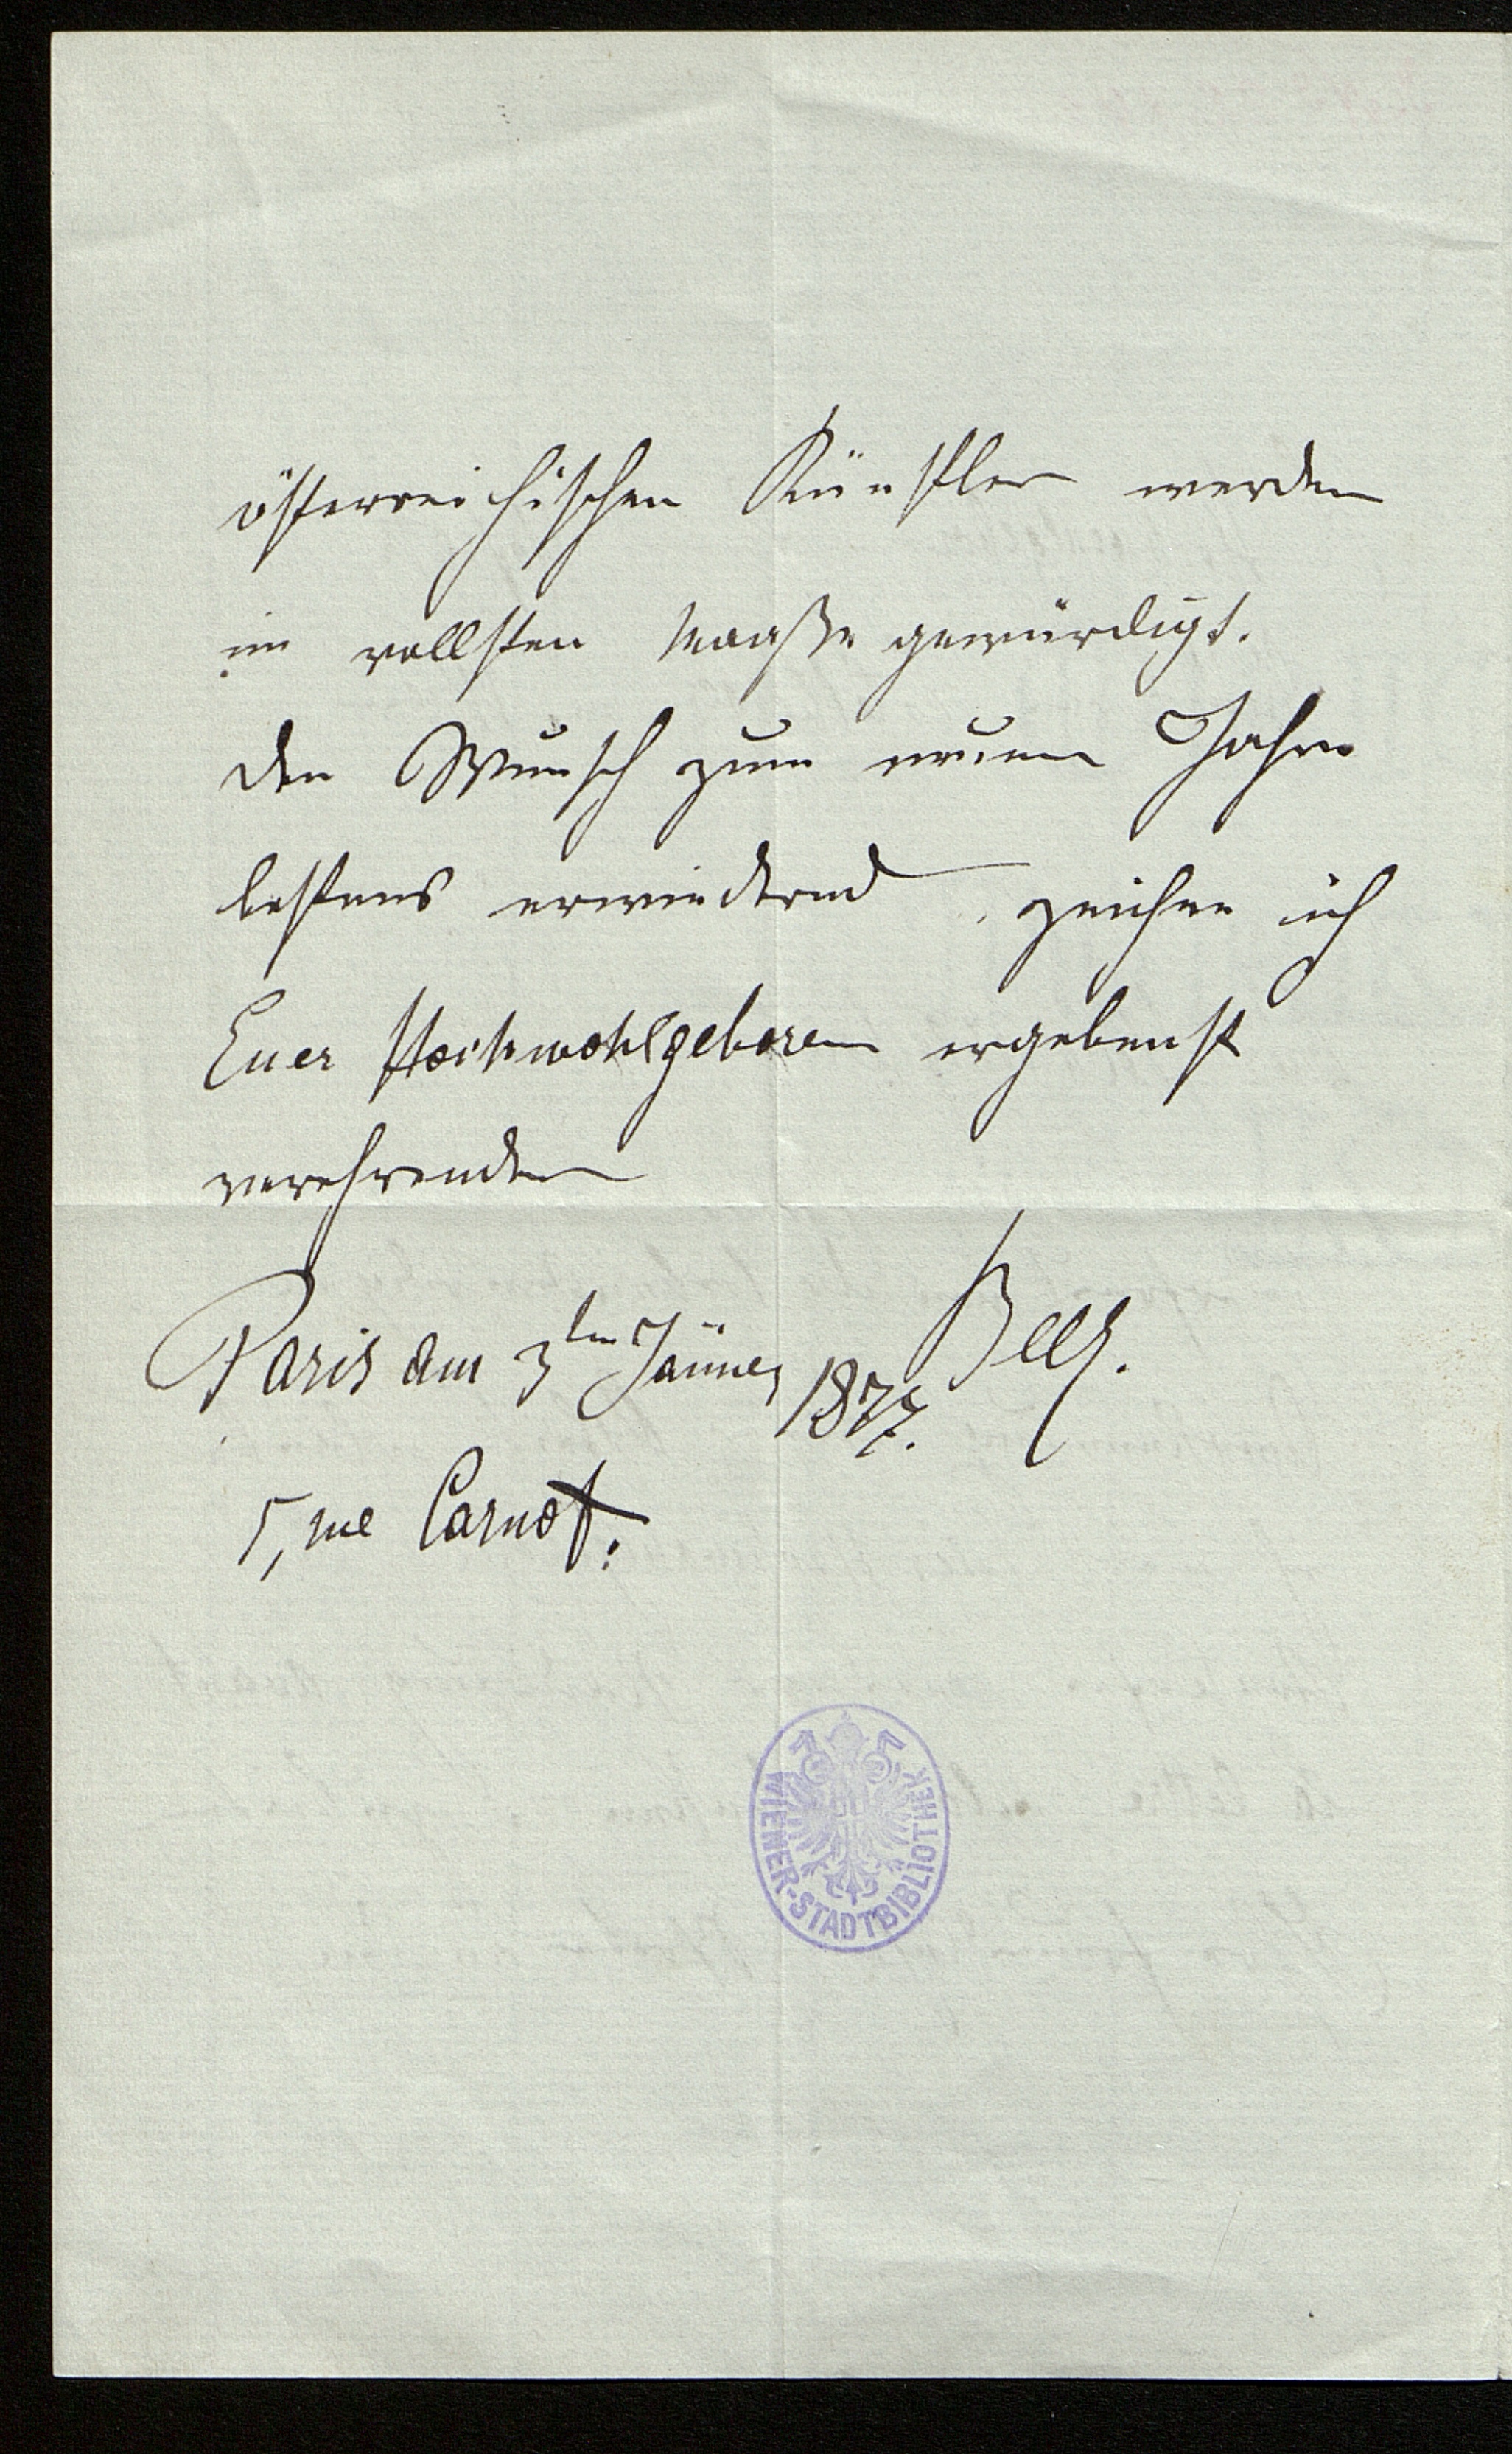 österreichischen Künstler werden
im vollsten Maaße gewürdigt.
Den Wunsch zum neuen Jahre
bestens erwiedernd zeichne ich
Euer Hochwohlgeboren ergebenst
verehrenden
Beer.
Paris am 3ten Jänner 1877.
5, rue Carnot.
WIENER-STADTBIBLIOTHEK